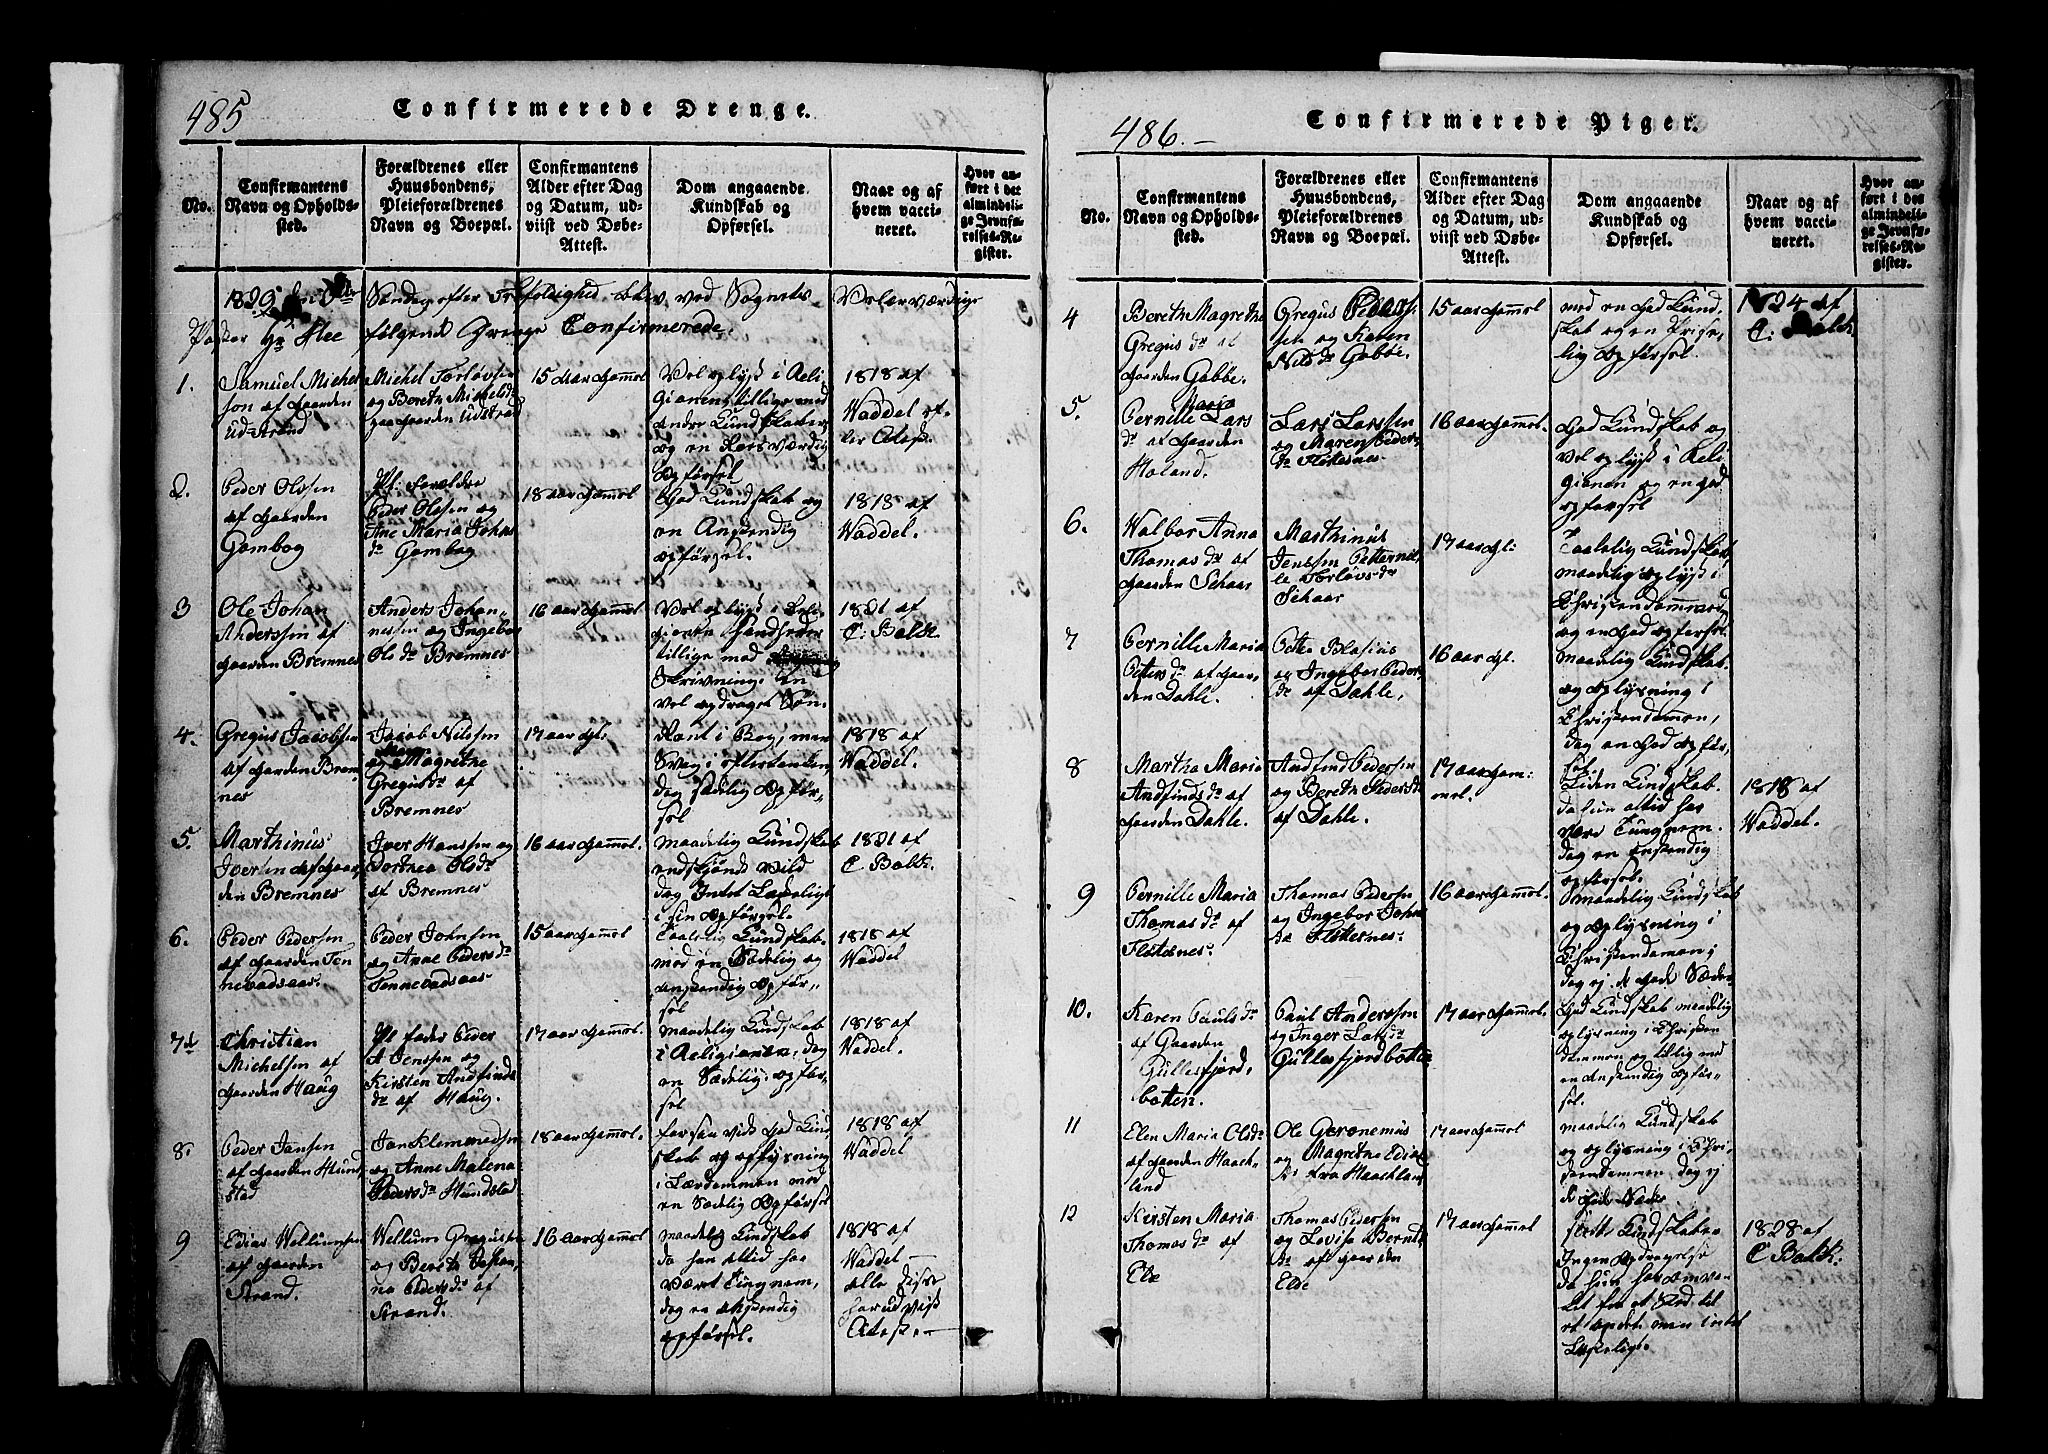 485
Confirmerede Drenge.
No.
Confirmantens
Navn og Opholds-
sted.
Forældrenes eller
Huusbondens,
Pleieforældrenes
Navn og Boepæl.
Confirmantens
Alder efter Dag
og Datum, ud-
viist ved Døbe-
Attest.
Dom angaaende
Kundskab og
Opførsel.
Naar og af
hvem vacci-
neret.
Hvor an-
ført i det
almindeli-
ge Jevnfø-
relses-Re-
gister.
Søndag efter
ved Sognets
følgende Drenge Confirmerede.
1.
Samuel Michel
son af Gaarden
Udstrand
Michel Torløvsen
og Bereth Michelsdr
paa Gaarden Udstrad
15 aar gamel
Vel oplyst i Reli
gionen tillige med
andre Kundskaber
og en Roesværdig
opførsel
1818 af
Waddel
2.
Peder Olssen
af Gaarden
Gombog
Pl: forældre
Peder Olssen og
Ane Maria Johns
dr Gombog
18 aar gamel
God Kundskab og
en Anstendig
opførsel.
1818 af
Waddel.
3
Ole Johan
Anderssen af
Gaarden Bremnes
Anders Johan-
nessen og Ingebor
Ols dr Bremnes
16 aar gamel
Vel oplyst i Reli
tillige med
Skrivning. en
vel opdraget Søn.
1821 af
C: Balk
4.
Gregus Jacobsen
af Gaarden Brem
nes
Jacob Nilssen
og Magrethe
Gregusdr af
Bremnes
17 aar gl:
Svag i eftertanken,
dog Sædelig opfør-
sel
1818 af
Waddel.
5.
Marthinus
Iversen af Gaar-
den Bremnes
Iver Hanssen og
Dorthea Olsdr
af Bremnes
16 aar gamel.
maadelig Kundskab
endskjøndt vild
dog Intet Lasteligt
i sin opførsel.
1821 af
C Balk.
6.
Peder Pedersen
af Gaarden Ten
nevadsaas.
Peder Johnsen
og Ane Pedersdr
Tennevadsaas
15 aar gamel
Taalelig Kundskab.
med en Sædelig og
anstendig opfør-
sel
1818 af
Waddel
7de
Christian
Michelsen af
Gaarden Haug
Pl fader Peder
A Jenssen og
Kirsten Andfinds
dr af Haug.
17 aar gamel
maadelig Kundskab
i Religionen, dog
en Sædelig opfør-
sel
1818 af
Waddel.
8.
Peder Jansen
af Gaarden Hund
stad
Jan Klemmedsen
og Anne Malena
Pedersdr Hundstad
18 aar gamel.
forsaavidt God Kund
skab og oplysning
i Lærdommen med
en Sædelig opførsel
1818 af
Waddel
9
Edias Welliumsen
af Gaarden
Strand.
Wellum Gregussen
og Bereth Johan-
na Pedersdr af
Strand.
16 aar gamel
maadelig Kundskab
da han altid har
været Tungnem,
dog en anstendig
opførsel.
1818 af
Waddel —
alle disse
har udviist
Attest. —
486. —
Confirmerede Piger.
No.
Confirmantens
Navn og Opholds-
sted.
Forældrenes eller
Huusbondens,
Pleieforældrenes
Navn og Boepæl.
Confirmantens
Alder efter Dag
og Datum, ud-
viist ved Døbe-
Attest.
Dom angaaende
Kundskab og
Opførsel.
Naar og af
hvem vacci-
neret.
Hvor an-
ført i det
almindeli-
ge Jevnfø-
relses-Re-
gister.
4
Bereth Magrethe
Gregus dr af
Gaarden Gabbe.
Gregus Peders
sen og Karen
Nils dr Gabbe.
15 aar gamel
med en God Kund
skab og en Prise
lig opførsel.
1824 af
C: Balk
5.
Maria
Pernille Lars
dr af Gaarden
Holand.
Lars Larssen
og Maren Peders
dr Flesnes
16 aar gamel.
God Kundskab og
vel oplyst i Reli
gionen og en god
opførsel
6.
Walbor Anna
Thomas dr af
Gaarden Schaar
Marthinus
Jenssen Petternel
le Torløvs dr
Schaar
17 aar gl:
Taalelig Kundskab,
maadelig oplyst i
Christendommen
og en God opførsel.
7
Pernille Maria
Petters dr af Gaar
den Dahle.
Petter Blasius
og Ingebor Peders
dr af Dahle.
16 aar gl.
maadelig Kundskab.
og oplysning i
Christendommen,
dog en God opfør-
sel.
8
Martha Maria
Andfinds dr af
Gaarden Dahle.
Andfind Pederssen
og Bereth Pedersdr
af Dahle.
17 aar gam:
mel.
Liden Kundskab.
da hun altid har
været Tungnem.
dog en anstendig
opførsel.
1818 af
Waddel.
9
Pernille Maria
Thomas dr af
Flesnes.
Thomas Pederssen
og Ingebor Johns
dr Flesnes.
16 aar gamel.
maadelig Kundskab
og oplysning i
Christendommen;
dog ej de gode Sæder
10.
Karen Pauls dr
af Gaarden
Gullesfjord,
botten.
Paul Anderssen
og Inger Larsdr
Gullesfjordbotten
17 aar gamel.
God Kundskab maadelig
oplysning i Christen
dommen og tillig med
en anstendig opfør-
sel.
11
Elen Maria Olsdr
af Gaarden Haach-
land
Ole Geronemus
og Magrethe
fra Haachland
17 aar gamel
maadelig Kundskab
og oplysning i Chri
stendommen, dog ej
de gode Sæder
12
Kirsten Maria
Thomas dr af
Ebe
Thomas Pederssen
og Lovisa Bernts
dr af Gaarden
Ebe
17 aar gamel
Kundskab og
Ingen opdragelse
da hun har
men intet
Lasteligt.
1828 af
C Balk.